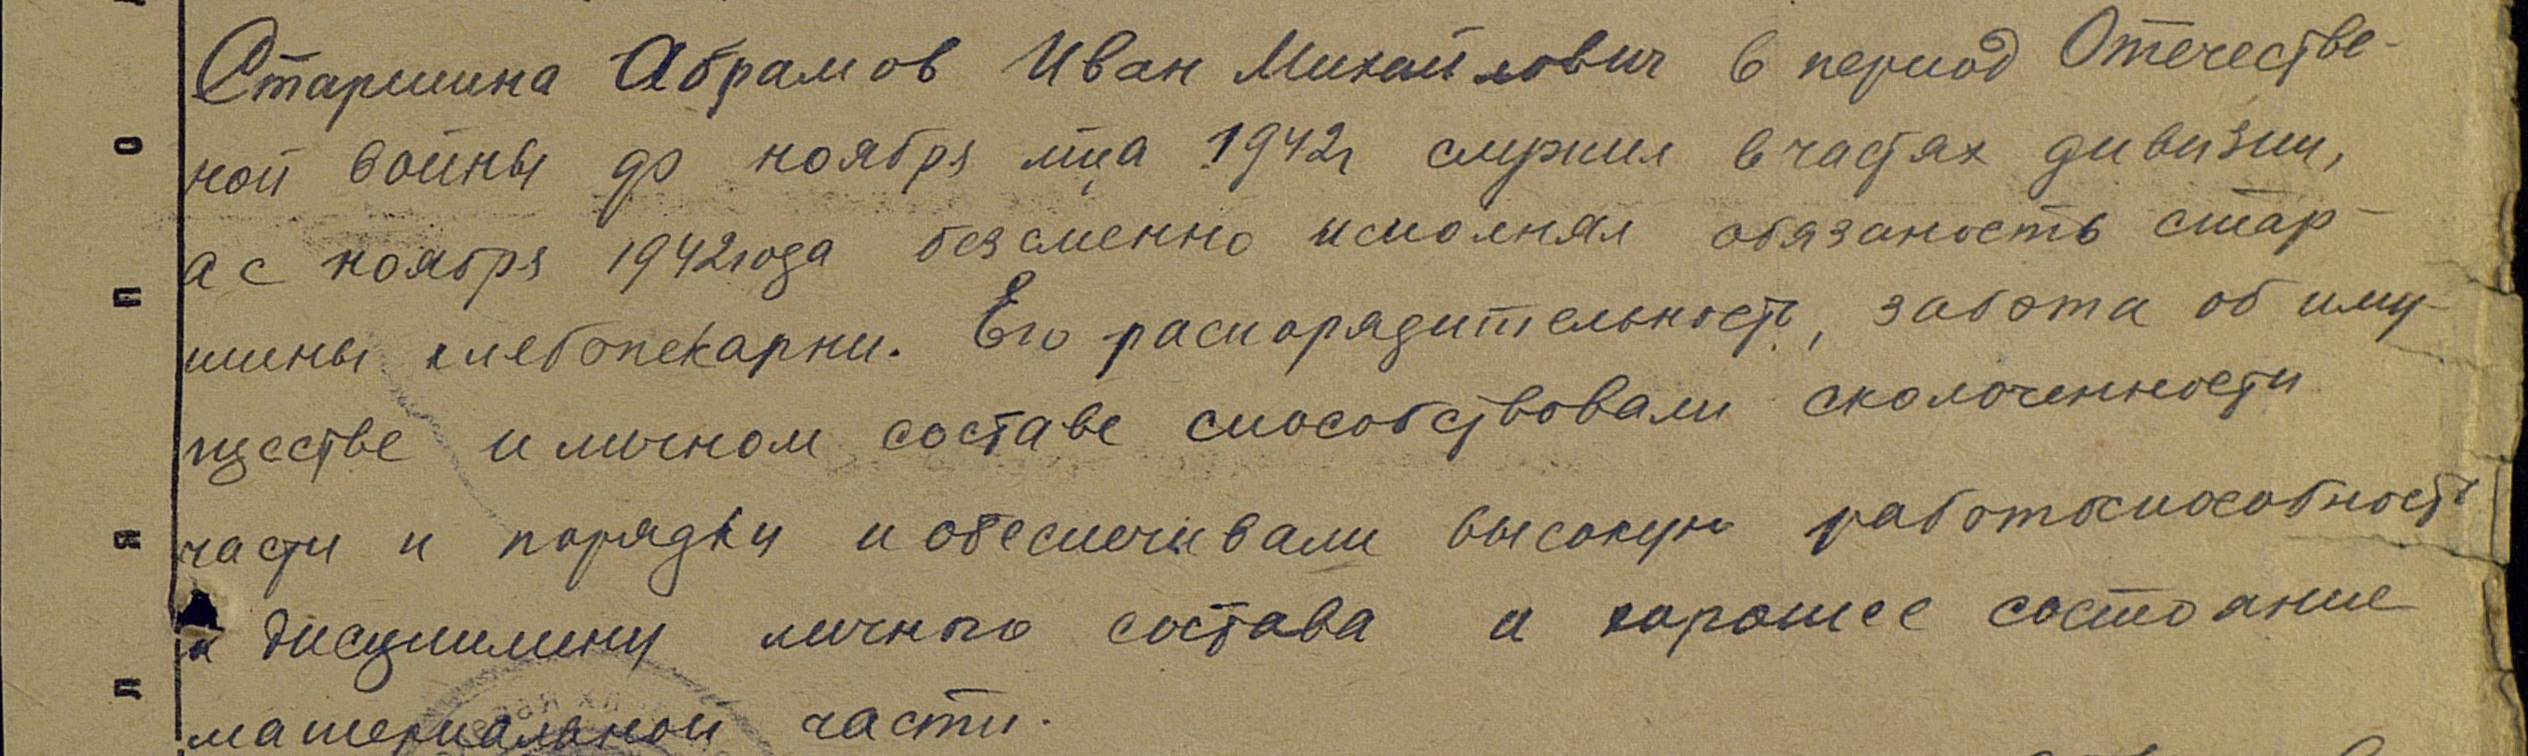 Старшина Абрамов Иван Михайлович в период Отечестве-
ной войны до ноября м-ца 1942г служил в частях дивизии,
а с ноября 1942 года безсменно исполнял обязаность стар-
шины хлебопекарни. Его распорядительность, забота об иму-
ществе и личном составе способствовали сколоченности
части и порядку и обеспечивали высокую работоспособность
и дисциплину личного состава и хорошее состоание
материальной части.